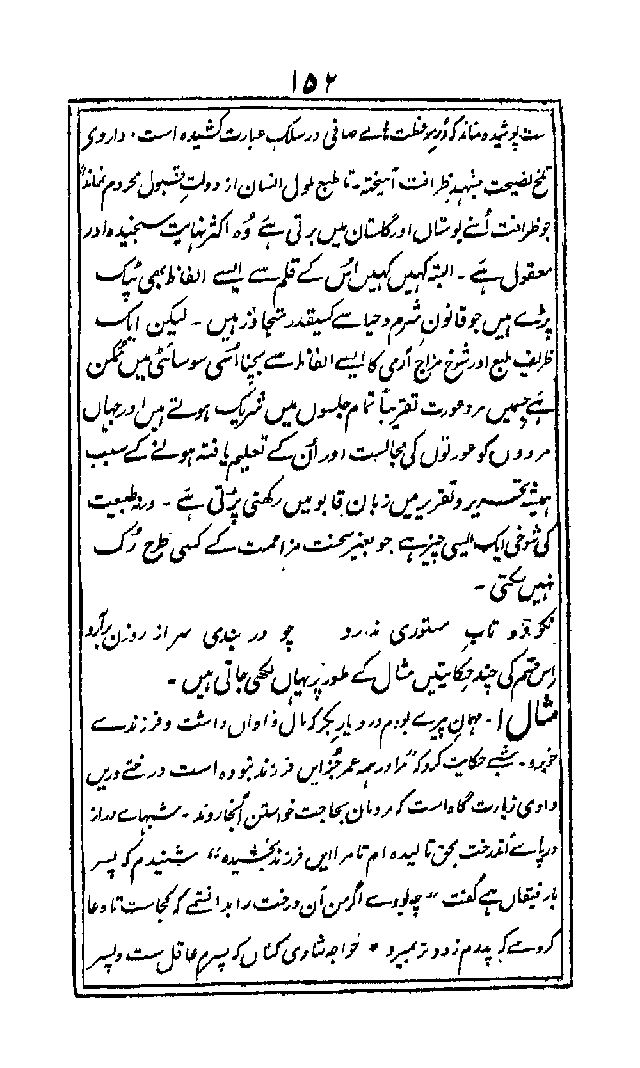 ۱۵۲
ست پوشیدہ نماند کہ دُرِ موعظت ہاے صافی در سلک عبارت کشیدہ است ۔ داروی
تلخ نصیحت بشہد ظرافت آمیختہ ۔ تا طبع ملول انسان از دولتِ قبول محروم نماند"
جو ظرافت اُسنے بوستاں اور گلستان میں برتی ہے وُہ اکثر نہایت سنجیدہ اور
معقول ہے ۔ البتہ کہیں کہیں اُس کے قلم سے ایسے الفاظ بھی ٹپک
پڑے ہیں جو قانونِ شرم و حیا سے کسیقدر متجاوز ہیں ۔ لیکن ایک
ظریف طبع اور شوخ مزاج آدمی کا ایسے الفاظ سے بچنا اُسی سوسائٹی میں ممکن
ہے جسمیں مرد عورت تقریباً تمام جلسوں میں شریک ہوتے ہیں اور جہاں
مردوں کو عورتوں کی مجالست اور اُن کے تعلیم یافتہ ہونے کے سبب
ہمیشہ تحریر و تقریر میں زبان قابو میں رکھنی پڑتی ہے ۔ ورنہ طبیعت
کی شوخی ایک ایسی چیز ہے جو بغیر سخت مزاحمت کے کسی طرح رُک
نہیں سکتی ۔
نکو رُو تابِ مستوری ندارد چو در بندی سر از روزن برآرد
اِس قسم کی چند حکایتیں مثال کے طور پر یہاں لکھی جاتی ہیں ۔
مثال ۱ ۔ مہمانِ پیرے بودم در دیارِ بکر کہ مال فراواں داشت و فرزندے
خوبرو ۔ شبے حکایت کرد کہ "مرا در ہمہ عمر جُز ایں فرزند نبودہ است درختے دریں
وادی زیارت گاہ است کہ مردمان بحاجت خواستن آنجا روند ۔ شبہاے دراز
در پاے آندرخت بحق نالیدہ ام تا مرا ایں فرزند بخشیدہ" شنیدم کہ پسر
با رفیقاں ہے گفت "چہ بودے اگر من آن درخت را بدانستمے کہ کجاست تا دعا
کردے کہ پدرم زود تر بمیرد" خواجہ شادی کناں کہ پسرم عاقل ست و پسر